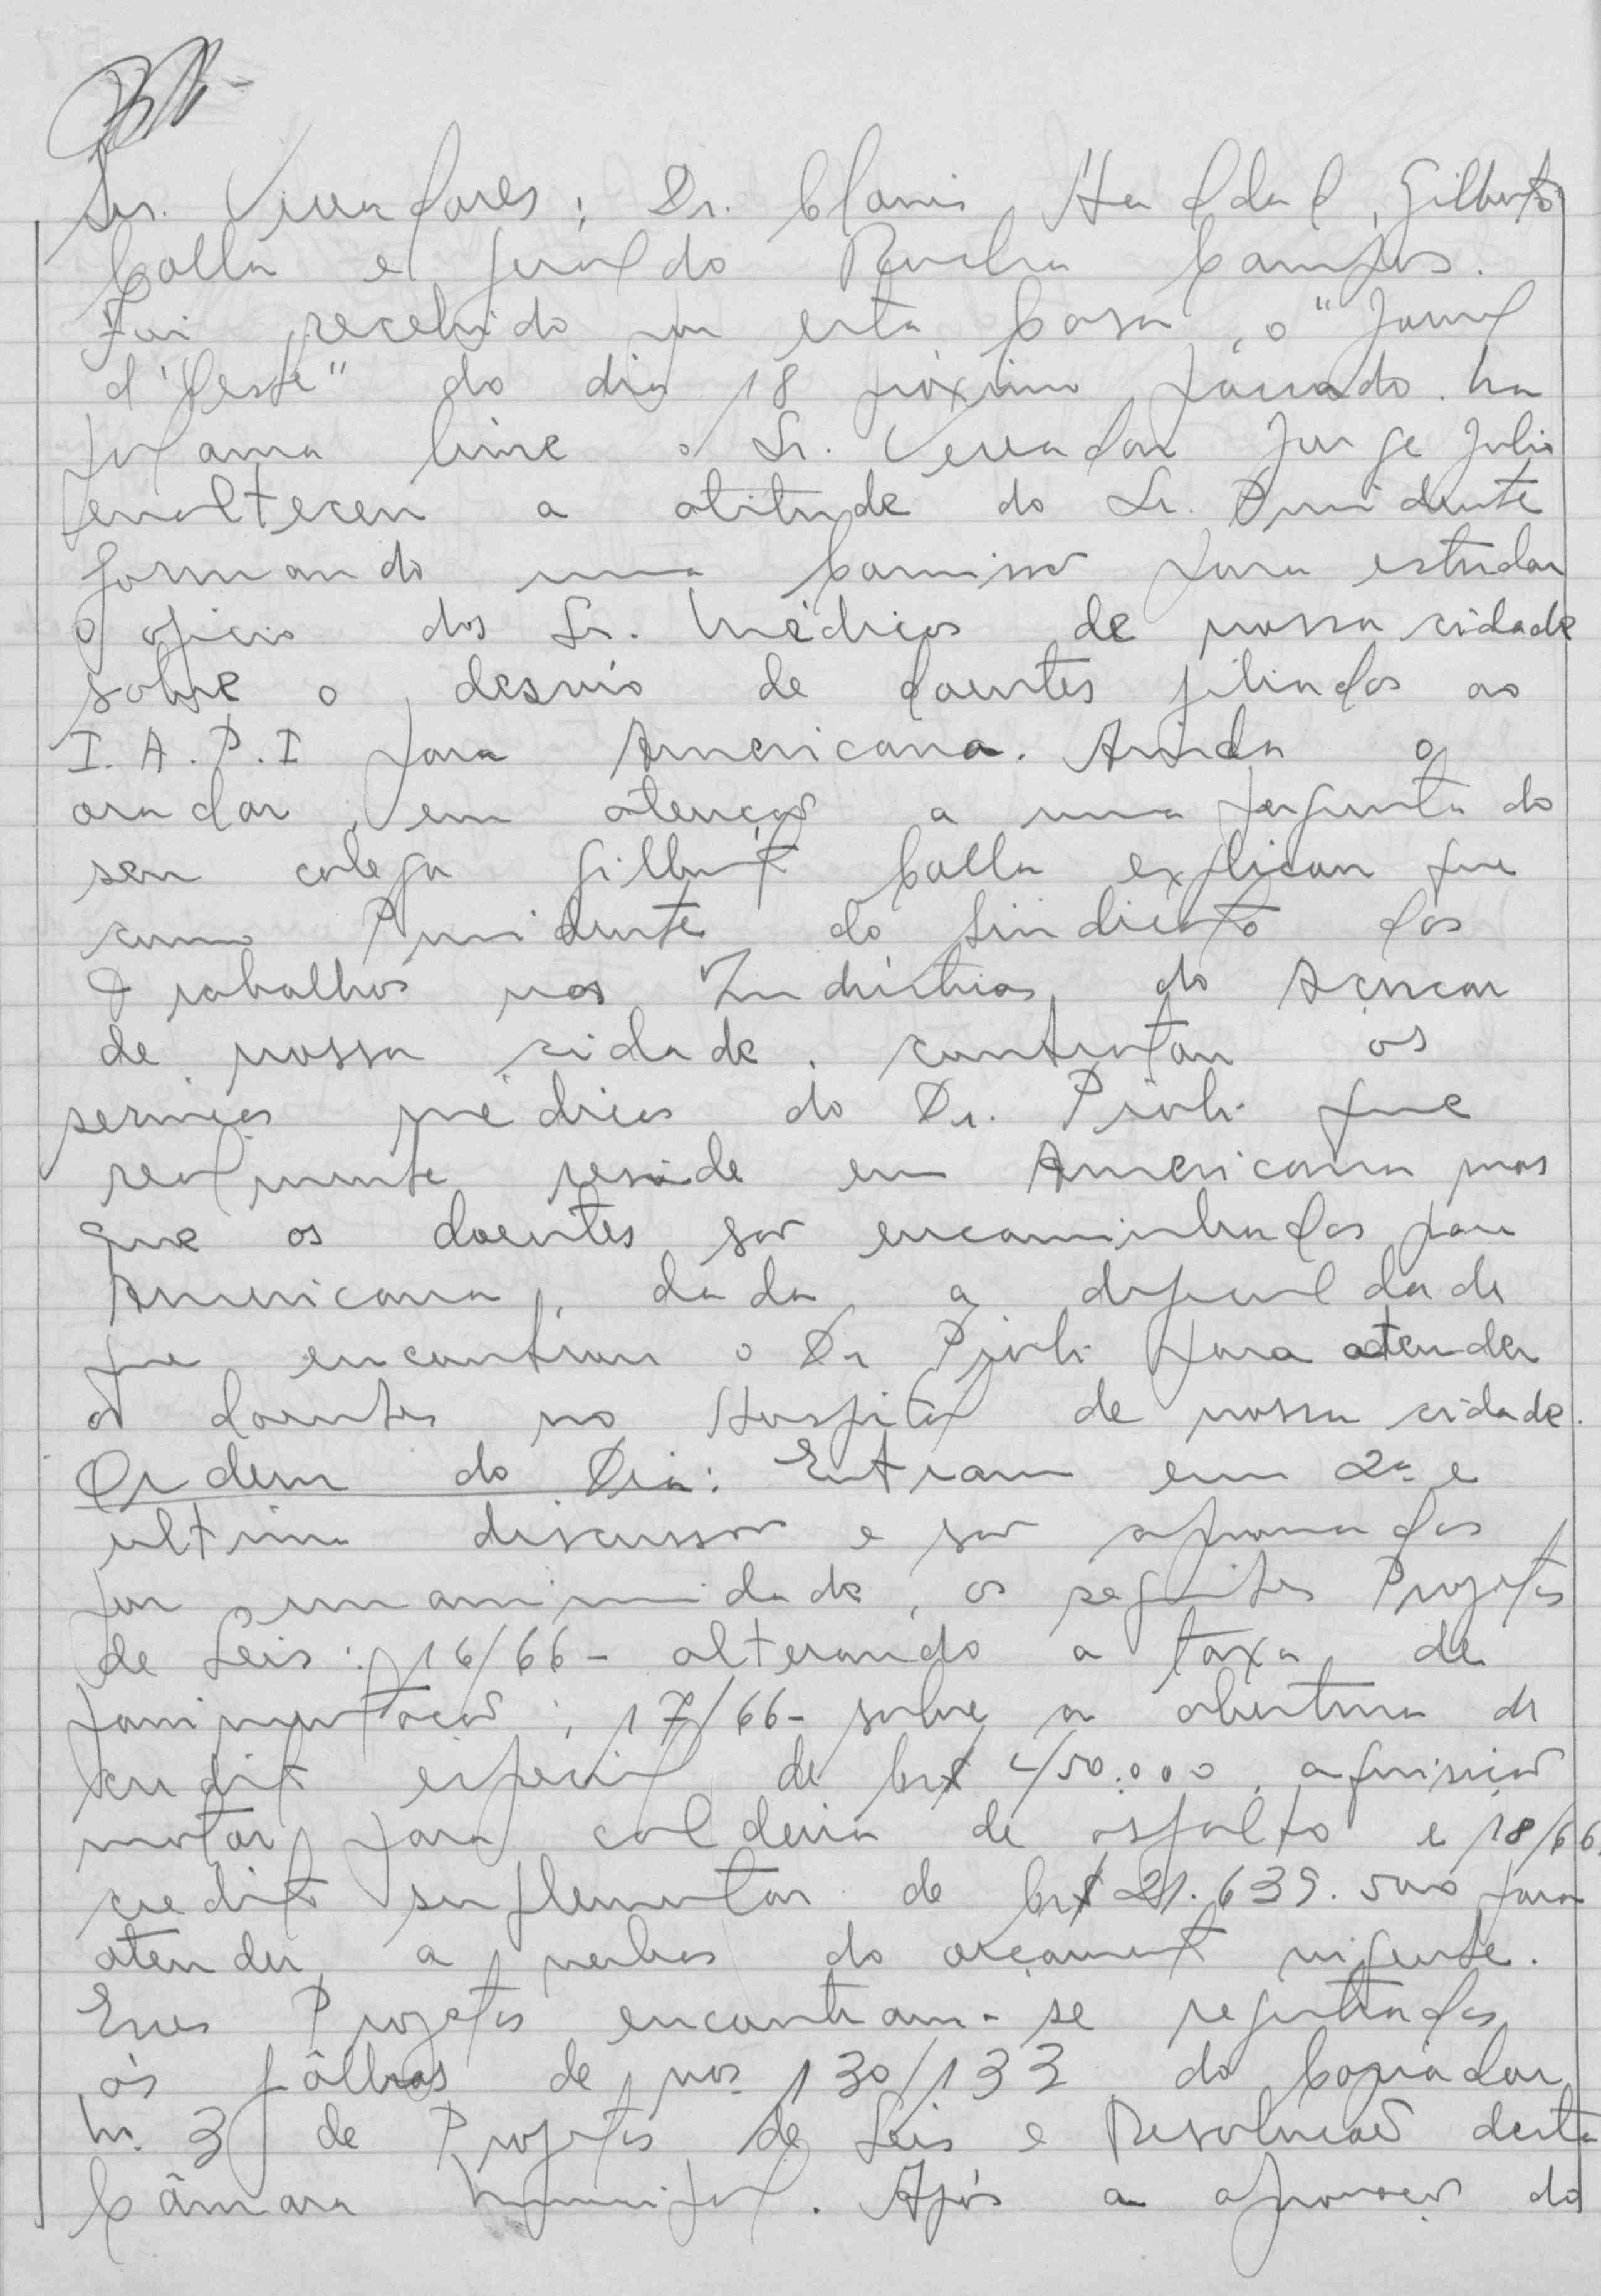 Srs. Vereadores: Dr. Clovis Haddad, Gilberto
Calla e Geraldo Rocha Campos.
Foi recebido por esta Casa, o "Jornal
d'Oeste" do dia 18 próximo passado. Na
palavra livre o Sr. Vereador Jorge Julio
enalteceu a atitude do Sr. Presidente
formando uma Comissão para estudar
o oficio dos Sr. Médicos de nossa cidade
sobre o desvio de doentes filiados ao
I.A.P.I para Americana. Ainda o
orador, em atenção a uma pergunta do
seu colega Gilberto Calla explicou que
como Presidente do Sindicato dos
Trabalhos nas Indústrias do Açucar
de nossa cidade, contratou os
serviços médicos do Dr. Pioli que
realmente reside em Americana mas
que os doentes são encaminhados para
Americana, dada a dificuldade
que encontrou o Dr Pioli para atender
os doentes no Hospital de nossa cidade.
Ordem do Dia: Entram em 2ª e
ultima discussão e são aprovados
por unanimidade, os seguintes Projetos
de Leis: 16/66 - alterando a taxa de
pavimentação; 17/66 - sobre a abertura de
credito especial de Cr$ 450.000, aquisição
motor para caldeira de asfalto e 18/66
credito suplementar de Cr$ 21.639.500 para
atender a verbas do orçamento vigente.
Esses Projetos encontram-se registrados
às fôlhas de nos. 130/133 do Copiador
Nr. 3 de Projetos de Leis e Resolução desta
Câmara Municipal. Após a aprovação do